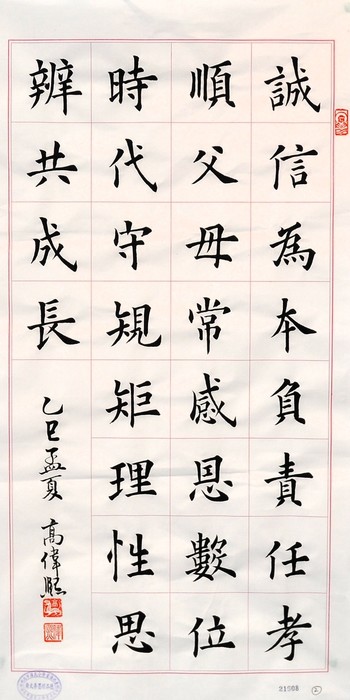 誠信為本負責任孝
順父母常感恩數位
時代守規矩理性思
辨共成長
乙巳孟夏 高偉熙
21988 ②